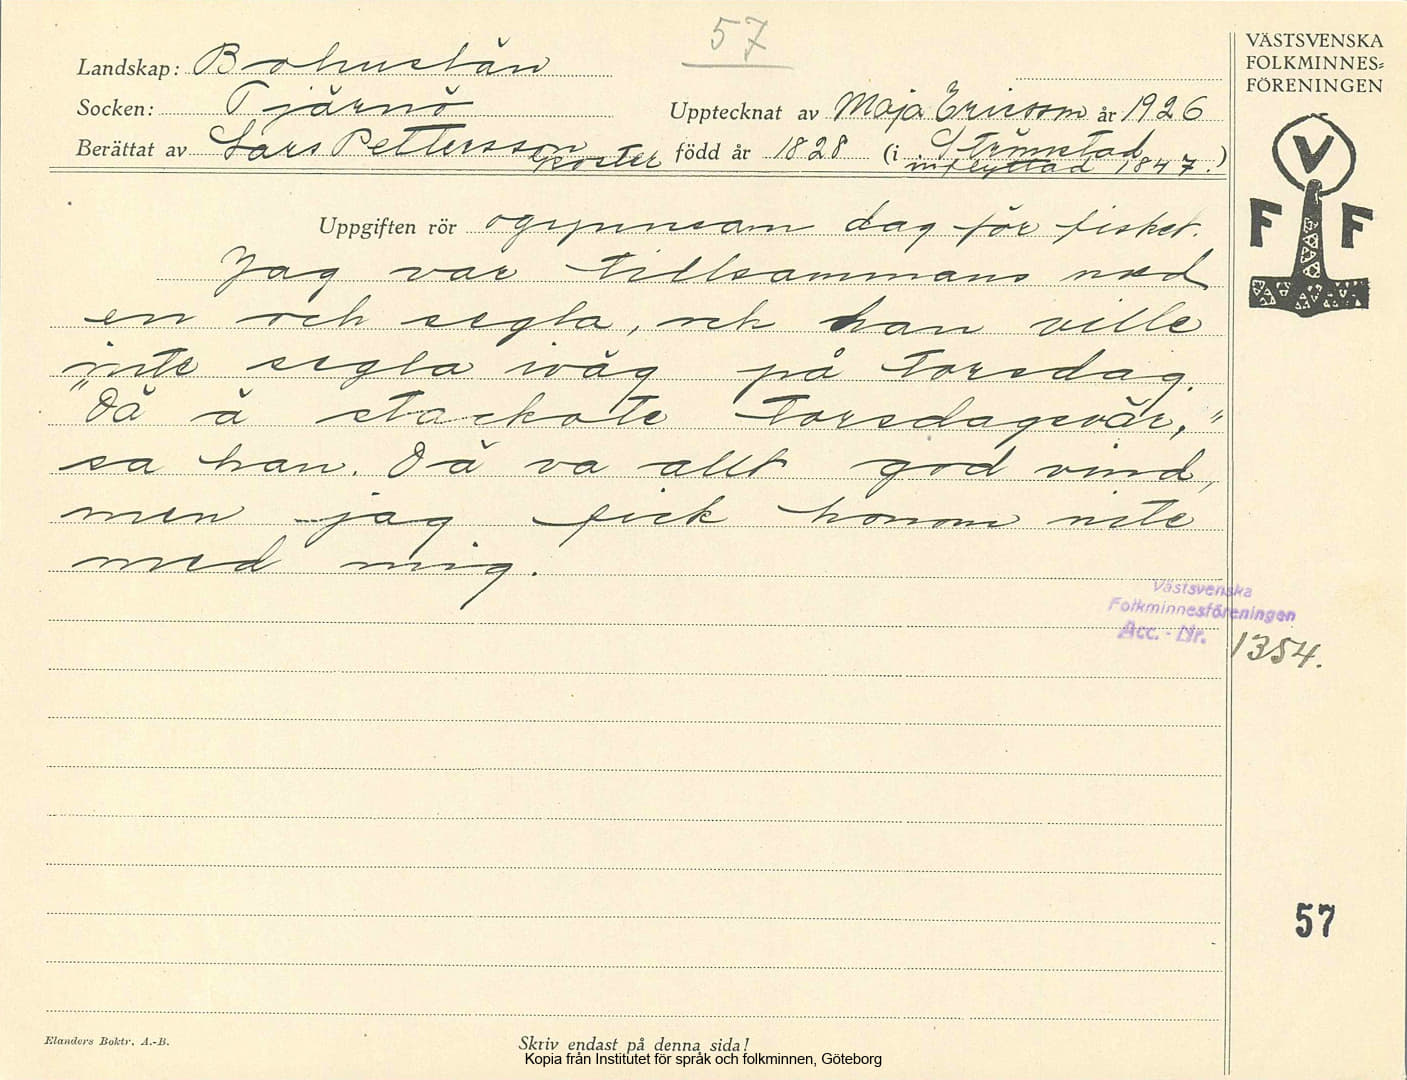 57
VÄSTSVENSKA
FOLKMINNES=
FÖRENINGEN
Landskap: Bohuslän
Socken: Tjärnö
Upptecknat av Maja Ericson år 1926
Berättat av Lars Pettersson Koster född år 1828 (i Strömstad
inflyttad 1847.)
V
F F
Uppgiften rör ogynnsam dag för fisket.
Jag var tillsammans med
en och segla, och han ville
inte segla iväg på torsdag.
"Dä ä stackote torsdagsvär,"
sa han. Dä va allt god vind,
men jag fick honom inte
med mig.
Västsvenska
Folkminnesföreningen
Acc. - Nr. 1354.
57
Elanders Boktr. A.-B.
Skriv endast på denna sida!
Kopia från Institutet för språk och folkminnen, Göteborg